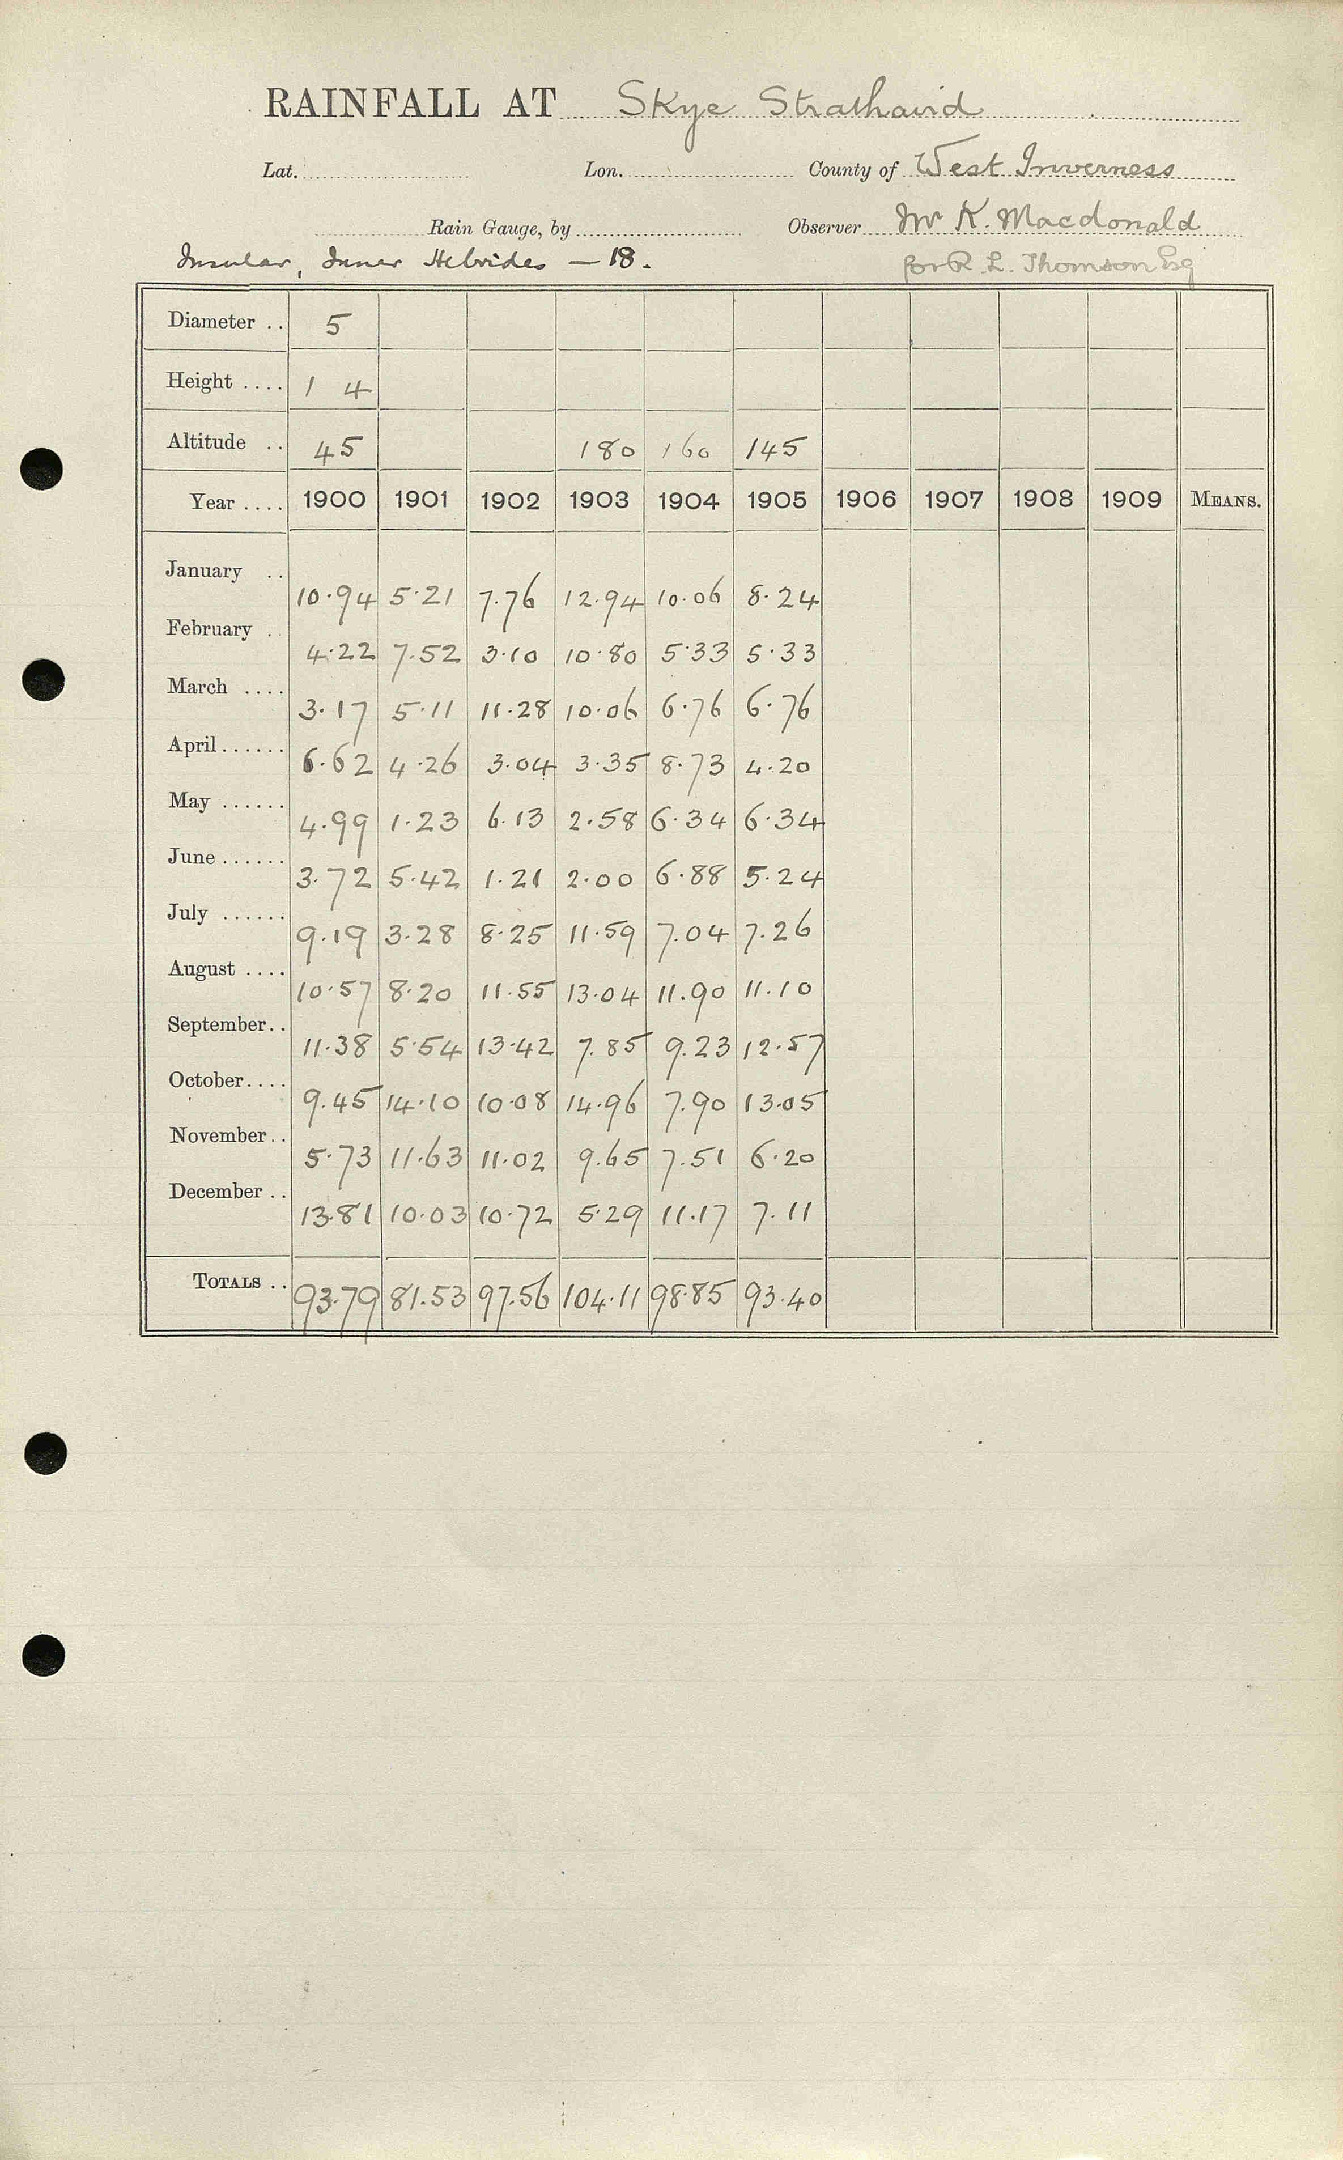 RAINFALL AT Skye Strathaird
Lat. Lon. County of West Inverness
Rain Gauge, by Observer Mr K. Macdonald
Insular, Inner Hebrides — 18. for R. L. Thomson Esq
Diameter .. 5
Height .... 1 4
Altitude .. 45 180 160 145
Year .... 1900 1901 1902 1903 1904 1905 1906 1907 1908 1909 MEANS.
January .. 10.94 5.21 7.76 12.94 10.06 8.24
February .. 4.22 7.52 3.10 10.80 5.33 5.33
March .... 3.17 5.11 11.28 10.06 6.76 6.76
April ...... 6.62 4.26 3.04 3.35 8.73 4.20
May ...... 4.99 1.23 6.13 2.58 6.34 6.34
June ...... 3.72 5.42 1.21 2.00 6.88 5.24
July ...... 9.19 3.28 8.25 11.59 7.04 7.26
August .... 10.57 8.20 11.55 13.04 11.90 11.10
September.. 11.38 5.54 13.42 7.85 9.23 12.57
October.... 9.45 14.10 10.08 14.96 7.90 13.05
November.. 5.73 11.63 11.02 9.65 7.51 6.20
December .. 13.81 10.03 10.72 5.29 11.17 7.11
TOTALS .. 93.79 81.53 97.56 104.11 98.85 93.40